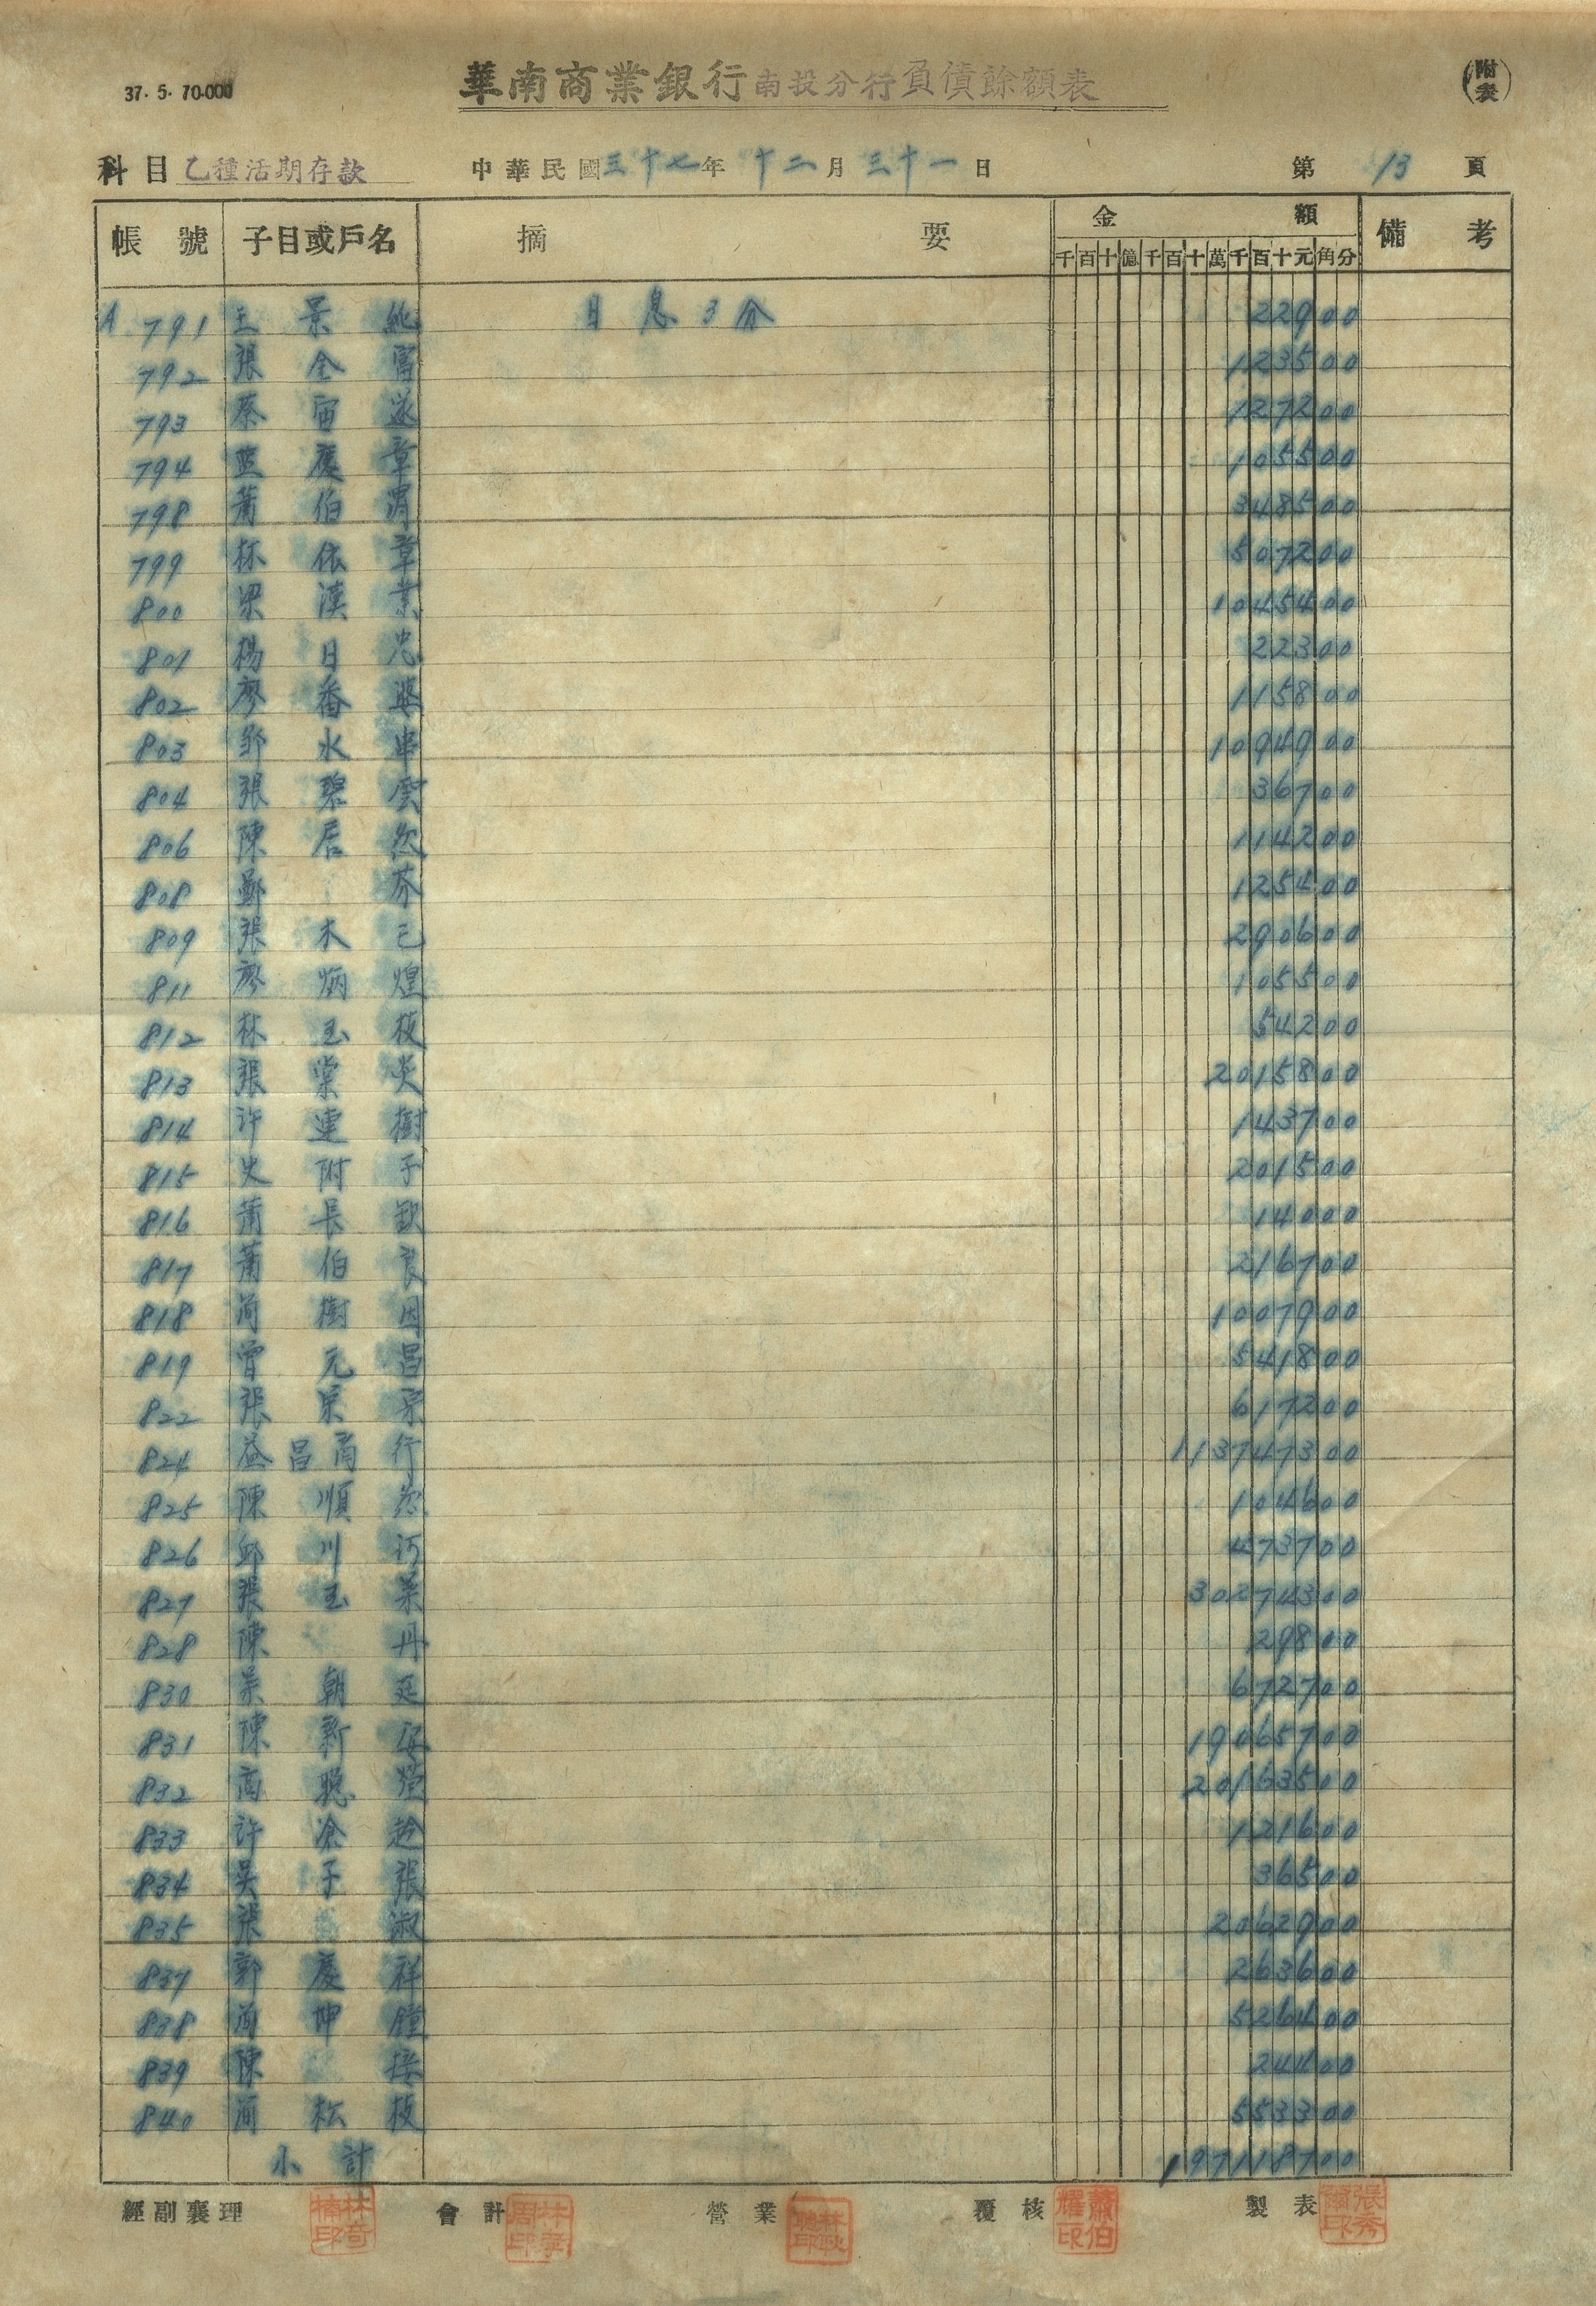 37. 5. 70.000
華南商業銀行南投分行負債餘額表
(附表)
科目 乙種活期存款 中華民國三十七年 十二月 三十一日 第 13 頁
帳號 子目或戶名 摘要 金額 備考
千百十億千百十萬千百十元角分
A 791 王景 日息3分 22900
792 張全富 123500
793 蔡 127200
794 藍慶章 105500
798 蕭伯 348500
799 林依章 507200
800 梁漢業 1045400
801 楊日忠 22300
802 廖番 115800
803 鄧水串 1094900
804 張碧雲 36700
806 陳居 114200
808 鄭芬 125400
809 張木己 290600
811 廖炳煌 105500
812 林玉枝 54200
813 張棠炎 2015800
814 許連樹 143700
815 史附子 201500
816 蕭長欽 14000
817 蕭伯良 216700
818 簡樹因 1007900
819 曾元昌 541800
822 張榮宗 617200
824 益昌商行 113747300
825 陳順 104600
826 邱川河 473700
827 張玉葉 30274300
828 陳丹 29800
830 葉朝廷 672700
831 陳新 19065700
832 高聰 20163500
833 許 121600
834 吳子張 36500
835 張淑 2062900
837 郭慶祥 263600
838 簡坤鐘 526400
839 陳接 24400
840 簡松枝 553300
小計 197118700
經副襄理 會計 營業 覆核 製表